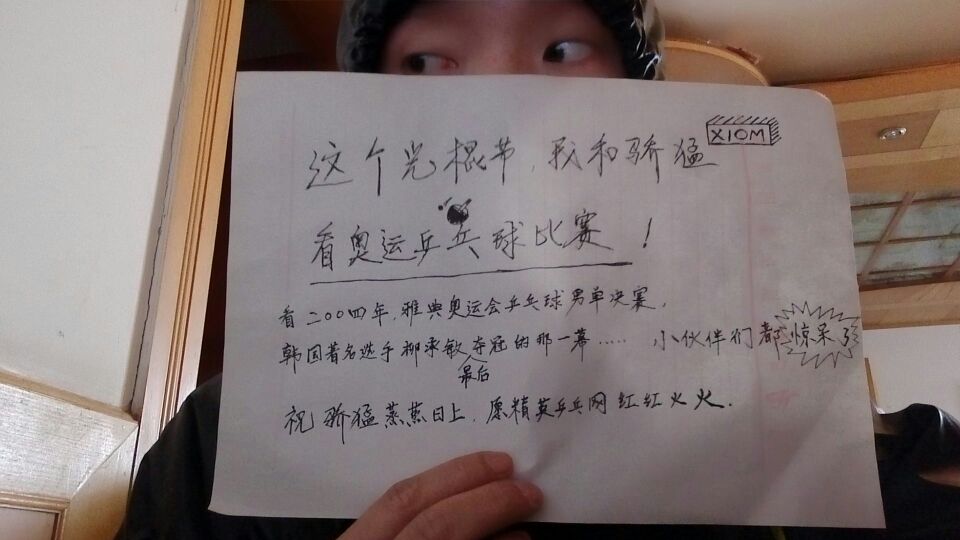 XIOM
这个光棍节,我和骄猛
看奥运乒乓球比赛!
看二00四年,雅典奥运会乒乓球男单决赛,
韩国著名选手柳承敏最后夺冠的那一幕…… 小伙伴们都惊呆了
祝骄猛蒸蒸日上,愿精英乒乓网红红火火.